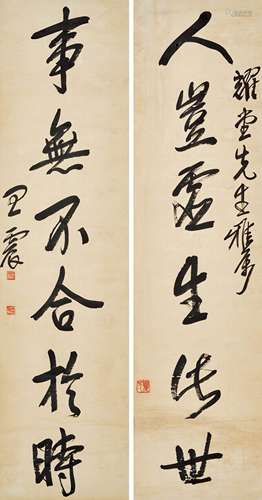 耀堂先生雅屬
人豈虛生世
事無不合於時
王震